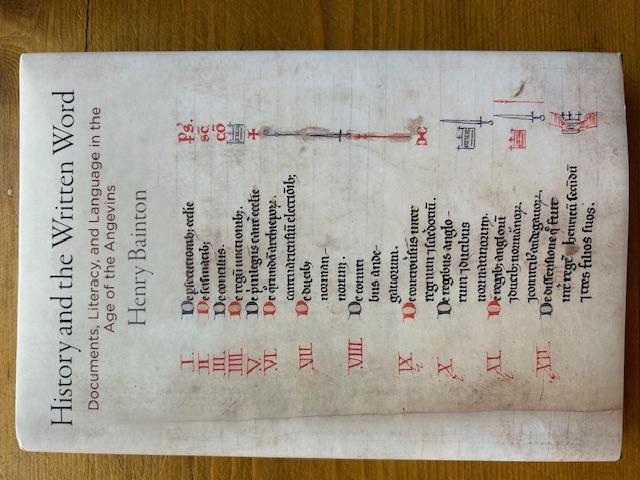 History and the Written Word
Documents, Literacy, and Language in the
Age of the Angevins
Henry Bainton
I. De persecutionib; ecclie
II. De scismatib;
III. De conciliis.
IIII. De regū unctionib;.
V. De privilegiis cant ecclie
VI. De
cantuariensiū electiōib;
VII. De ducib;
norman-
norum.
VIII. De comiti
bus ande-
gavorum.
IX. De controversiis inter
regnum
X. De regibus anglo
rum ducibus
normannorum.
XI. De regib; anglorū
ducib; normānoꝝ,
comitib andegavoꝝ.
XII. De dissensione q fuit
int regē henricū secūdū
tres filios suos.
pṡ.
sc̄
cō